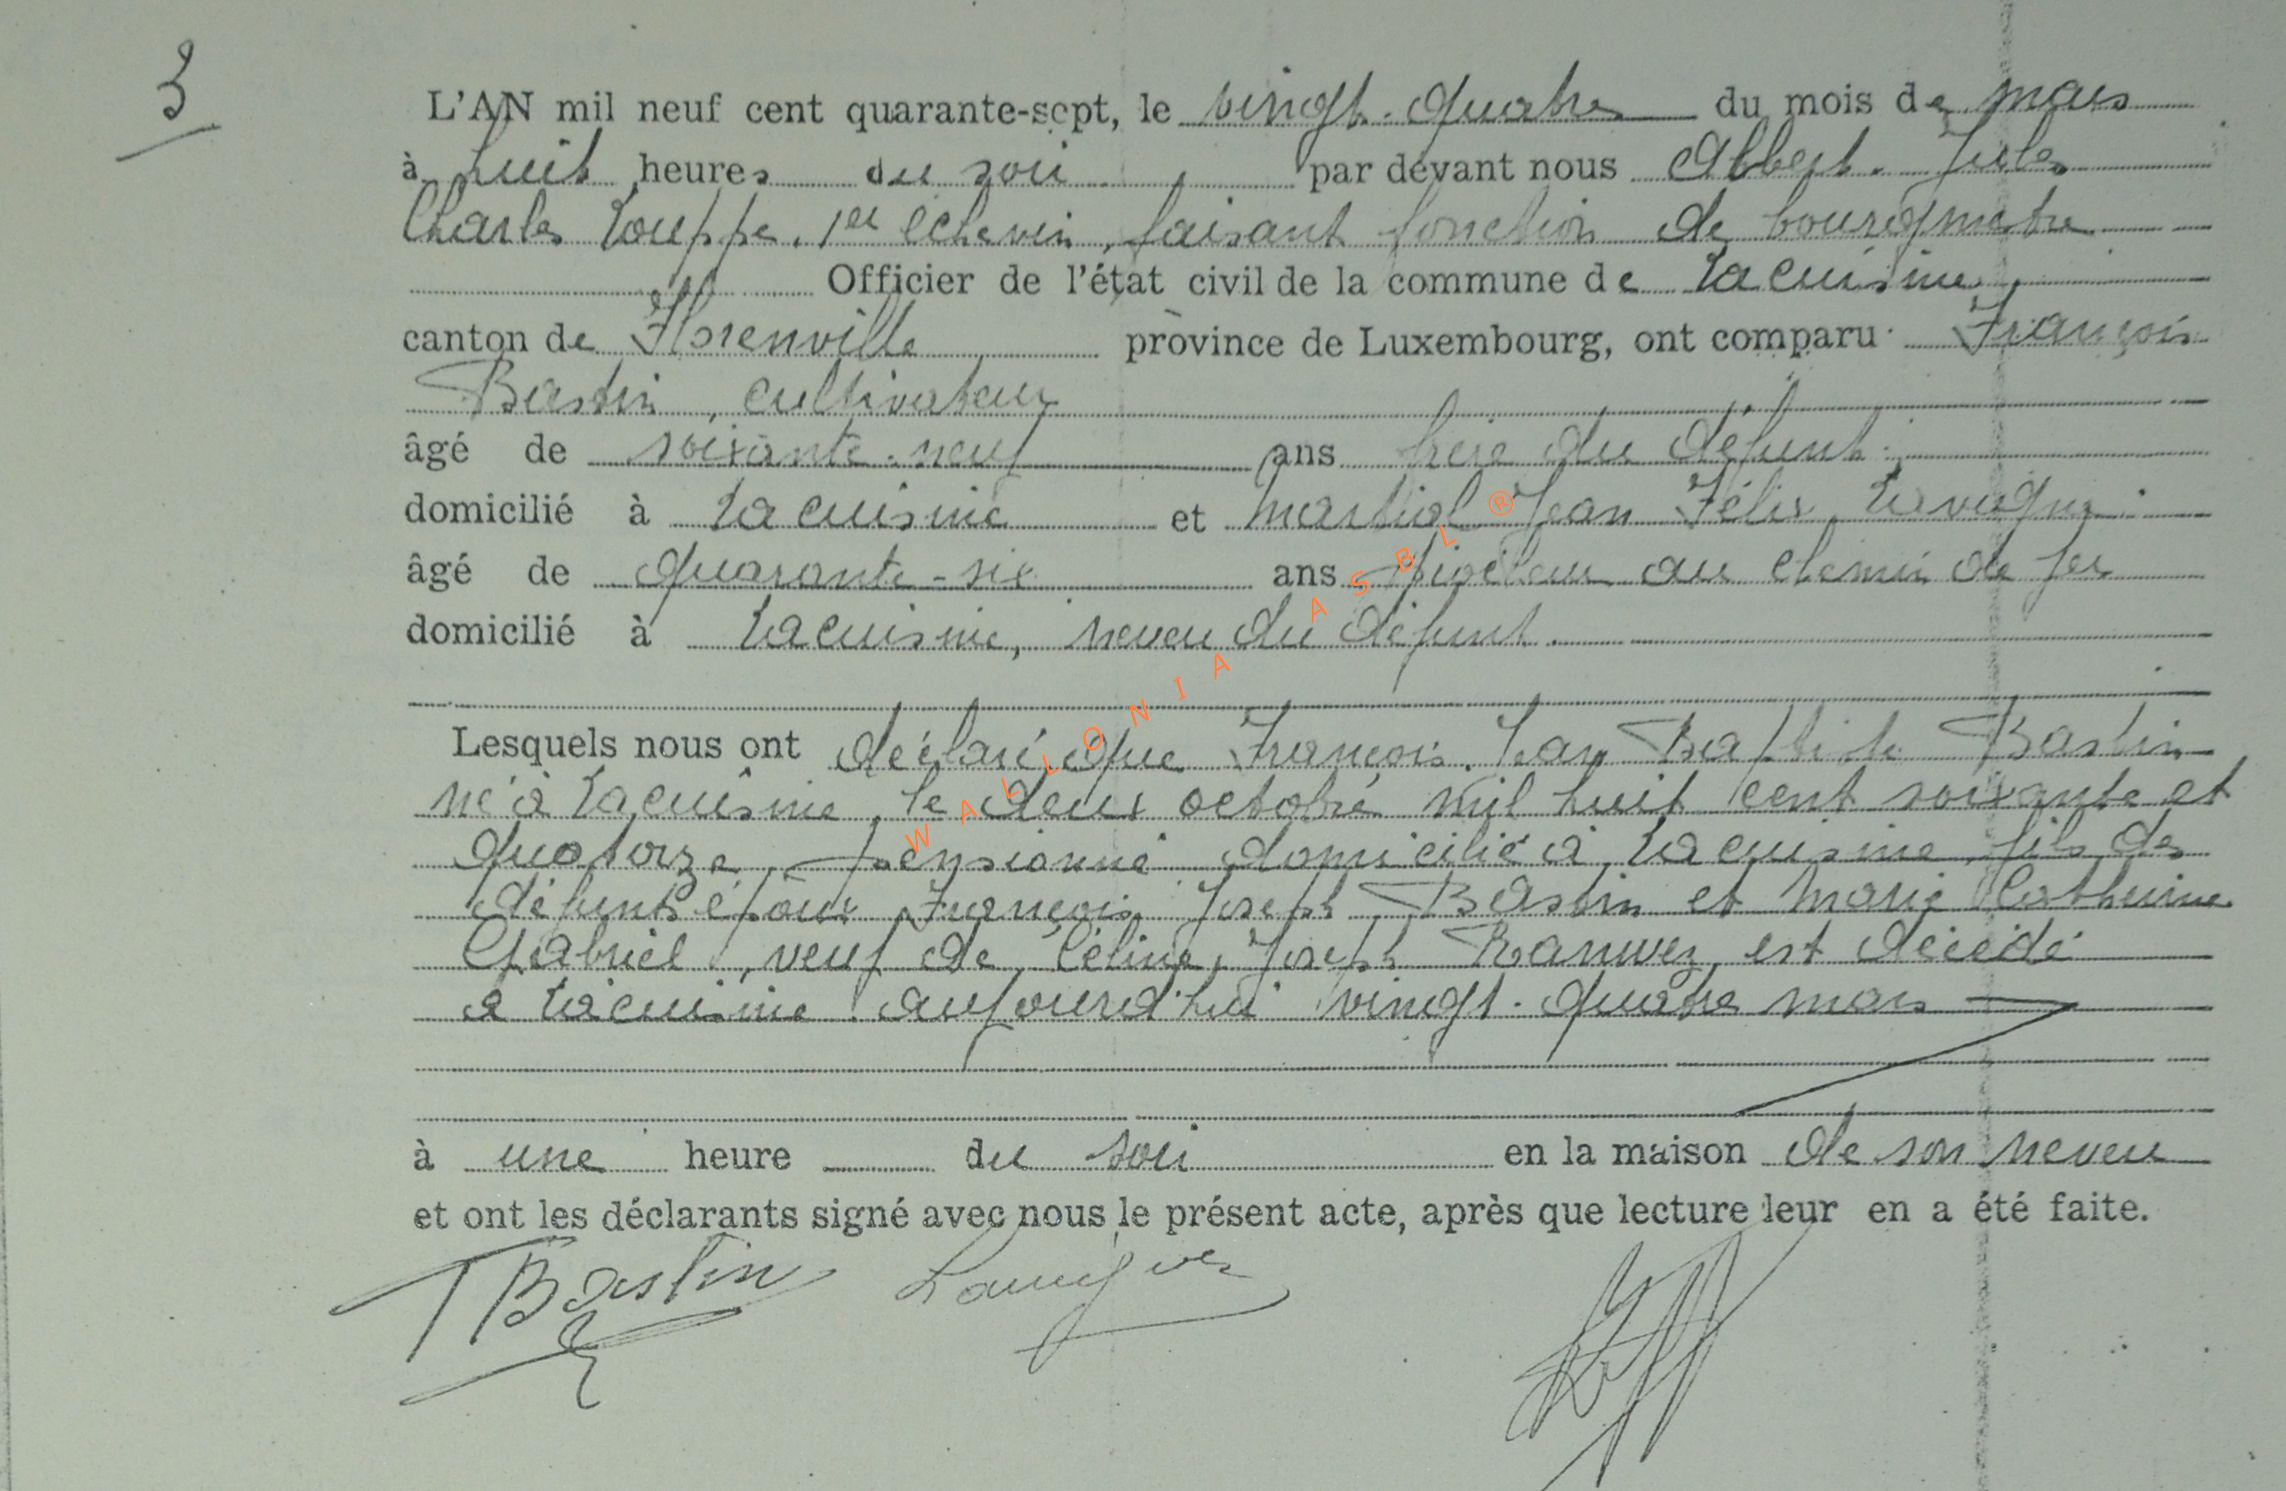 3
L'AN mil neuf cent quarante-sept, le vingt-quatre du mois de mars
à huit heures du soir par devant nous Albert. Jules
Charles Louppe. 1er échevin, faisant fonction de bourgmetre
Officier de l'état civil de la commune de Lacuisine,
canton de Florenville province de Luxembourg, ont comparu François
Bastin, cultivateur
âgé de soixante-neuf ans frère du défunt.
domicilié à Lacuisine et Martial Jean Félix Lavigne
âgé de quarante-six ans au chemin de fer
domicilié à Lacuisine, neveu du défunt.
Lesquels nous ont déclaré que François. Jean Baptiste Bastin
né à Lacuisine, le deux octobre mil huit cent soixante et
quatorze, pensionné domicilié à Lacuisine, fils des
défunts époux François Joseph Bastin et Marie Catherine
Gabriel, veuf de Céline, Joseph Ranwez, est décédé
a Lacuisine aujourd'hui vingt-quatre mars
à une heure du soir en la maison de son neveu
et ont les déclarants signé avec nous le présent acte, après que lecture leur en a été faite.
Bastin Lavigne
WALLONIA ASBL ®